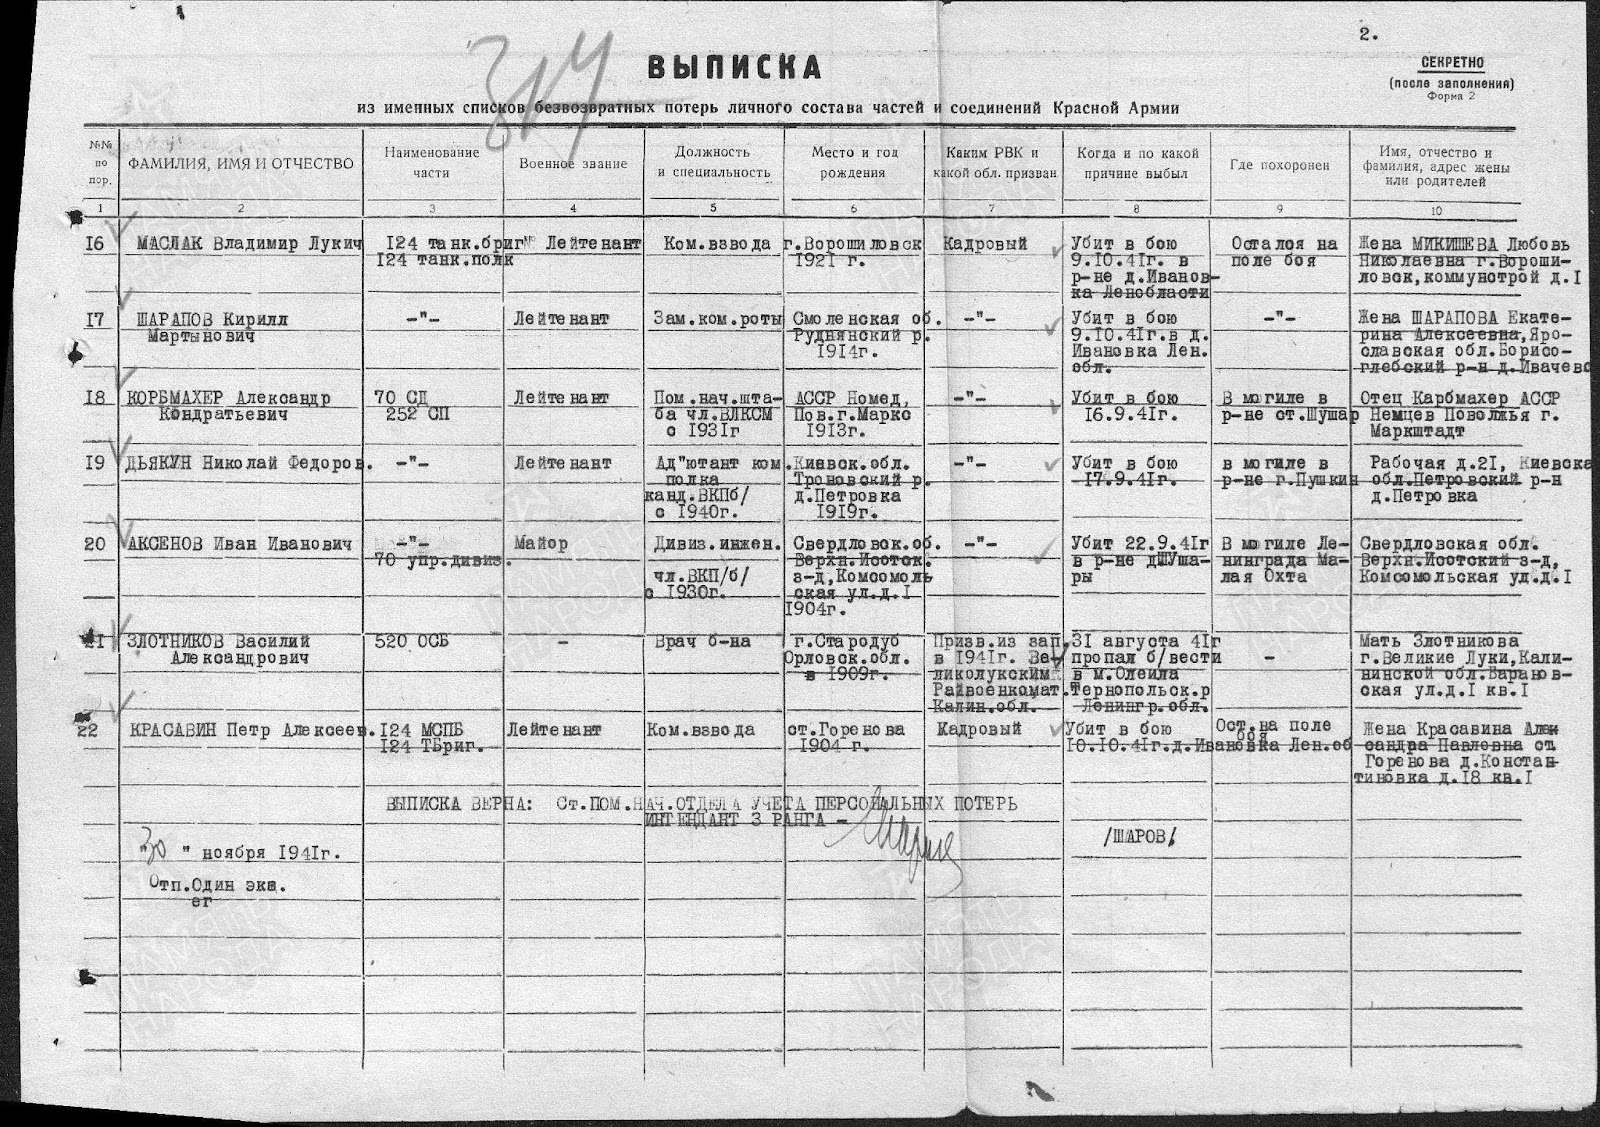 2.
ВЫПИСКА
СЕКРЕТНО
(после заполнения)
Форма 2
из именных списков безвозвратных потерь личного состава частей и соединений Красной Армии
№№ по пор.
ФАМИЛИЯ, ИМЯ И ОТЧЕСТВО
Наименование части
Военное звание
Должность и специальность
Место и год рождения
Каким РВК и какой обл. призван
Когда и по какой причине выбыл
Где похоронен
Имя, отчество и фамилия, адрес жены или родителей
1 2 3 4 5 6 7 8 9 10
16
МАСЛАК Владимир Лукич
124 танк.бриг
124 танк.полк
Лейтенант
Ком.взвода
г.Ворошиловск
1921 г.
Кадровый
Убит в бою
9.10.41г. в
р-не д.Иванов-
ка Ленобласти
Остался на
поле боя
Жена МИКИШЕВА Любовь
Николаевна г.Вороши-
ловск,коммунстрой д.1
17
ШАРАПОВ Кирилл
Мартынович
-"-
Лейтенант
Зам.ком.роты
Смоленская об.
Руднянский р.
1914г.
-"-
Убит в бою
9.10.41г.в д.
Ивановка Лен.
обл.
-"-
Жена ШАРАПОВА Екате-
рина Алексеевна,Яро-
славская обл.Борисо-
глебский р-н д.Ивачево
18
КОРБМАХЕР Александр
Кондратьевич
70 СД
252 СП
Лейтенант
Пом.нач.шта-
ба чл.ВЛКСМ
с 1931г
АССР Номед,
Пов.г.Маркс
1913г.
-"-
Убит в бою
16.9.41г.
В могиле в
р-не ст.Шушар
Отец Карбмахер АССР
Немцев Поволжья г.
Маркштадт
19
ДЬЯКУН Николай Федоров.
-"-
Лейтенант
Ад"ютант ком.
полка
канд.ВКПб/
с 1940г.
Киевск.обл.
Троновский р.
д.Петровка
1919г.
-"-
Убит в бою
17.9.41г.
в могиле в
р-не г.Пушкин
Рабочая д.21, Киевска
обл.Петровский р-н
д.Петровка
20
АКСЕНОВ Иван Иванович
-"-
70 упр.дивиз.
Майор
Дивиз.инжен.
чл.ВКП/б/
с 1930г.
Свердловск.об.
Верхн.Исетск.
з-д,Комсомоль
ская ул.д.1
1904г.
-"-
Убит 22.9.41г
в р-не дШУша-
ры
В могиле Ле-
нинграда Ма-
лая Охта
Свердловская обл.
Верхн.Исетский з-д,
Комсомольская ул.д.1
21
ЗЛОТНИКОВ Василий
Александрович
520 ОСБ
-
Врач б-на
г.Стародуб
Орловск.обл.
в 1909г.
Призв.из зап.
в 1941г. Ве-
ликолукским
Райвоенкомат.
Калин.обл.
31 августа 41г
пропал б/вести
в м.Олеила
Тернопольск.р
Ленингр.обл.
-
Мать Злотникова
г.Великие Луки,Кали-
нинской обл.Баранов-
ская ул.д.1 кв.1
22
КРАСАВИН Петр Алексеев.
124 МСПБ
124 ТБриг.
Лейтенант
Ком.взвода
ст.Горенова
1904 г.
Кадровый
Убит в бою
10.10.41г.д.Ивановка Лен.об
Ост.на поле
боя
Жена Красавина Алек
сандра Павловна ст.
Горенова д.Констан-
тиновка д.18 кв.1
ВЫПИСКА ВЕРНА: Ст.ПОМ.НАЧ.ОТДЕЛА УЧЕТА ПЕРСОНАЛЬНЫХ ПОТЕРЬ
ИНТЕНДАНТ 3 РАНГА -
/ШАРОВ/
"30" ноября 1941г.
Отп.Один экв.
ег